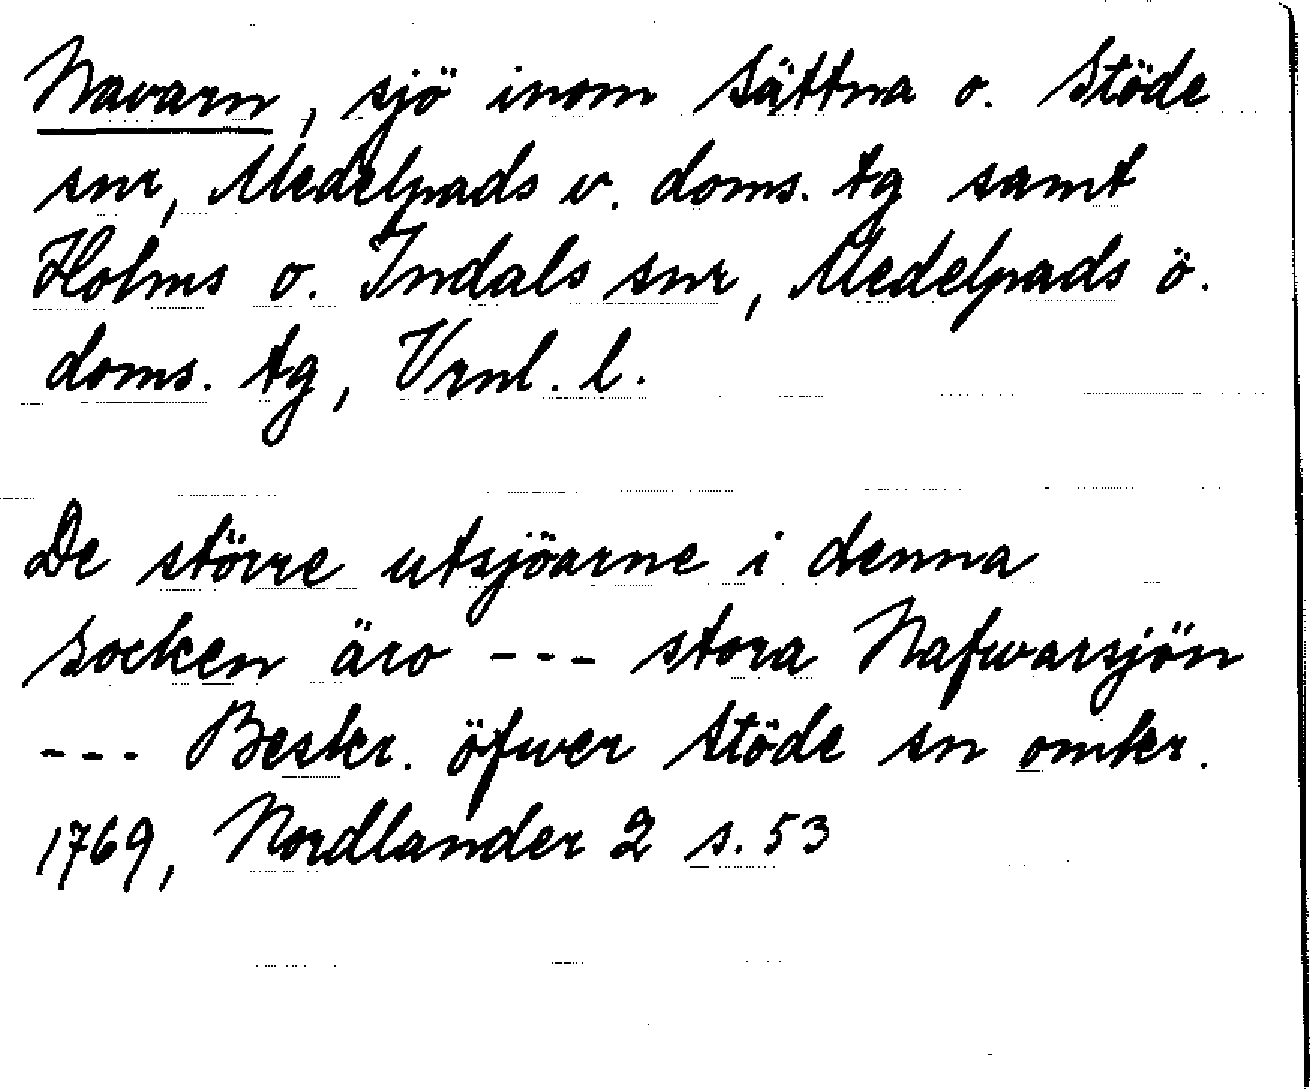 Navarn, sjö inom Sättna o. Stöde
snr, Medelpads v. doms. tg samt
Holms o. Indals snr, Medelpads ö.
doms. tg, Vrnl. l.
De större utsjöarne i denna
socken äro --- stora Nafwarsjön
--- Beskr. öfwer Stöde sn omkr.
1769, Nordlander 2 s. 53